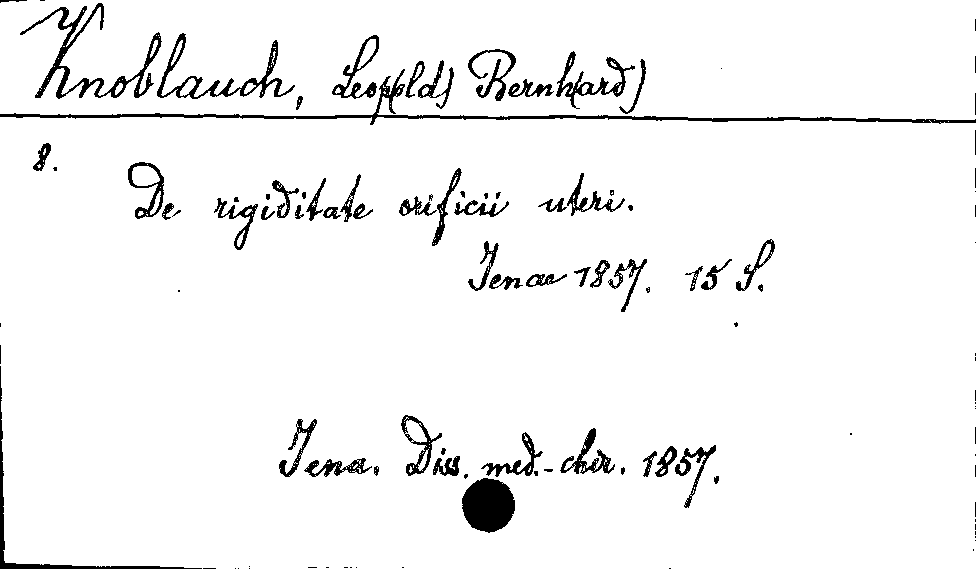 Knoblauch, Leop(old) Bernh(ard)
8.
De rigiditate orificii uteri.
Jenae 1857. 15 S.
Jena. Diss. med.-chir. 1857.